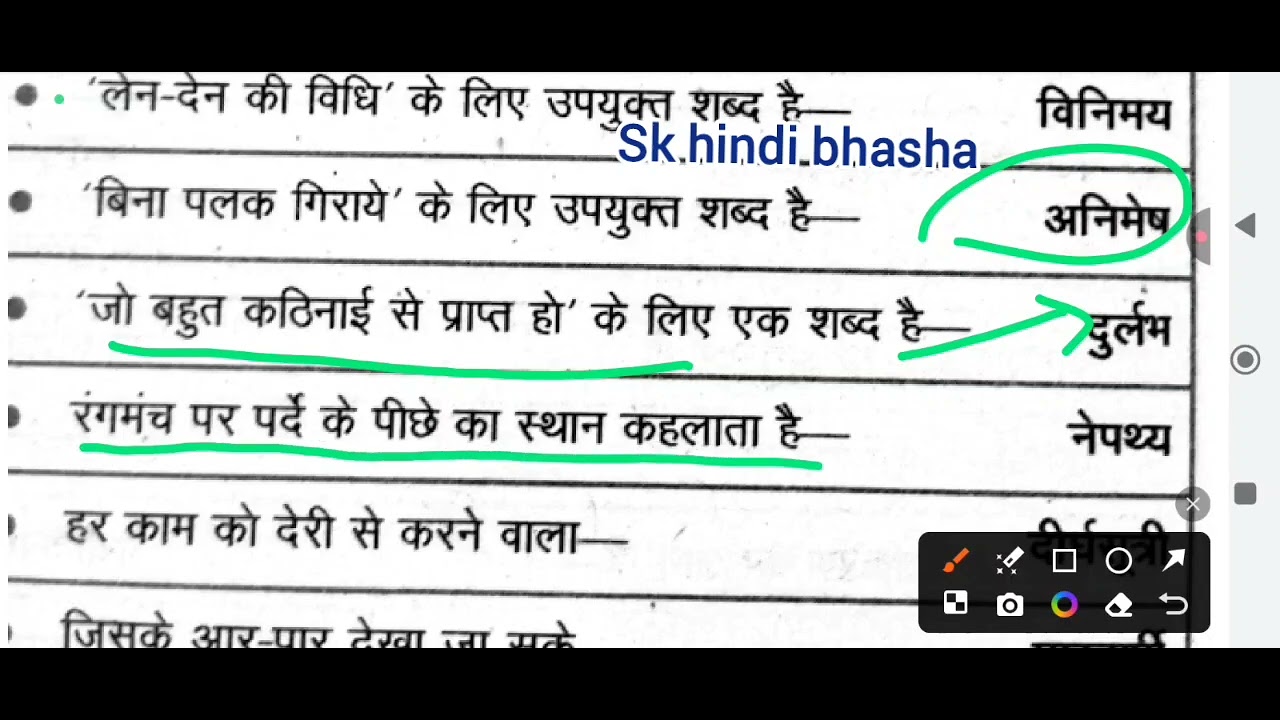 'लेन-देन की विधि' के लिए उपयुक्त शब्द है— विनिमय
Sk hindi bhasha
'बिना पलक गिराये' के लिए उपयुक्त शब्द है— अनिमेष
'जो बहुत कठिनाई से प्राप्त हो' के लिए एक शब्द है— दुर्लभ
रंगमंच पर पर्दे के पीछे का स्थान कहलाता है— नेपथ्य
हर काम को देरी से करने वाला—
जिसके आर-पार देखा जा सके